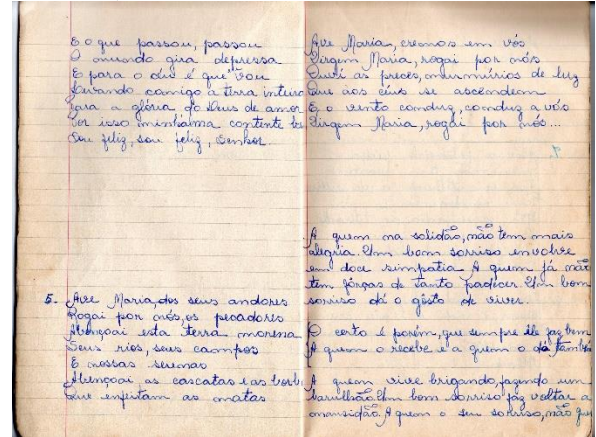 E o que passou, passou
O mundo gira depressa
E para o céu é que vou
Levando comigo a terra inteira
Para a glória do Deus de amor
Por isso minhalma contente
Sou feliz, sou feliz, Senhor.
5. Ave Maria, dos seus andores
Rogai por nós, os pecadores
Abençoai esta terra morena
Seus rios, seus campos
E nossas serenas
Abençoai as cascatas e as borb
Que enfeitam as matas
Ave Maria, cremos em vós
Virgem Maria, rogai por nós
Ouvi as preces, murmúrios de luz
Que aos céus se ascendem
E o vento conduz, conduz a vós
Virgem Maria, rogai por nós...
7.
A quem na solidão, não tem mais
alegria. Um bom sorriso envolve
em doce simpatia A quem já não
tem forças de tanto padecer Um bom
sorriso dá o gôsto de viver.
O certo é porém, que sempre êle faz bem
A quem o recebe e a quem o dá també
A quem vive brigando, fazendo um
barulhão Um bom sorriso faz voltar a
mansidão. A quem o seu sorriso, não que